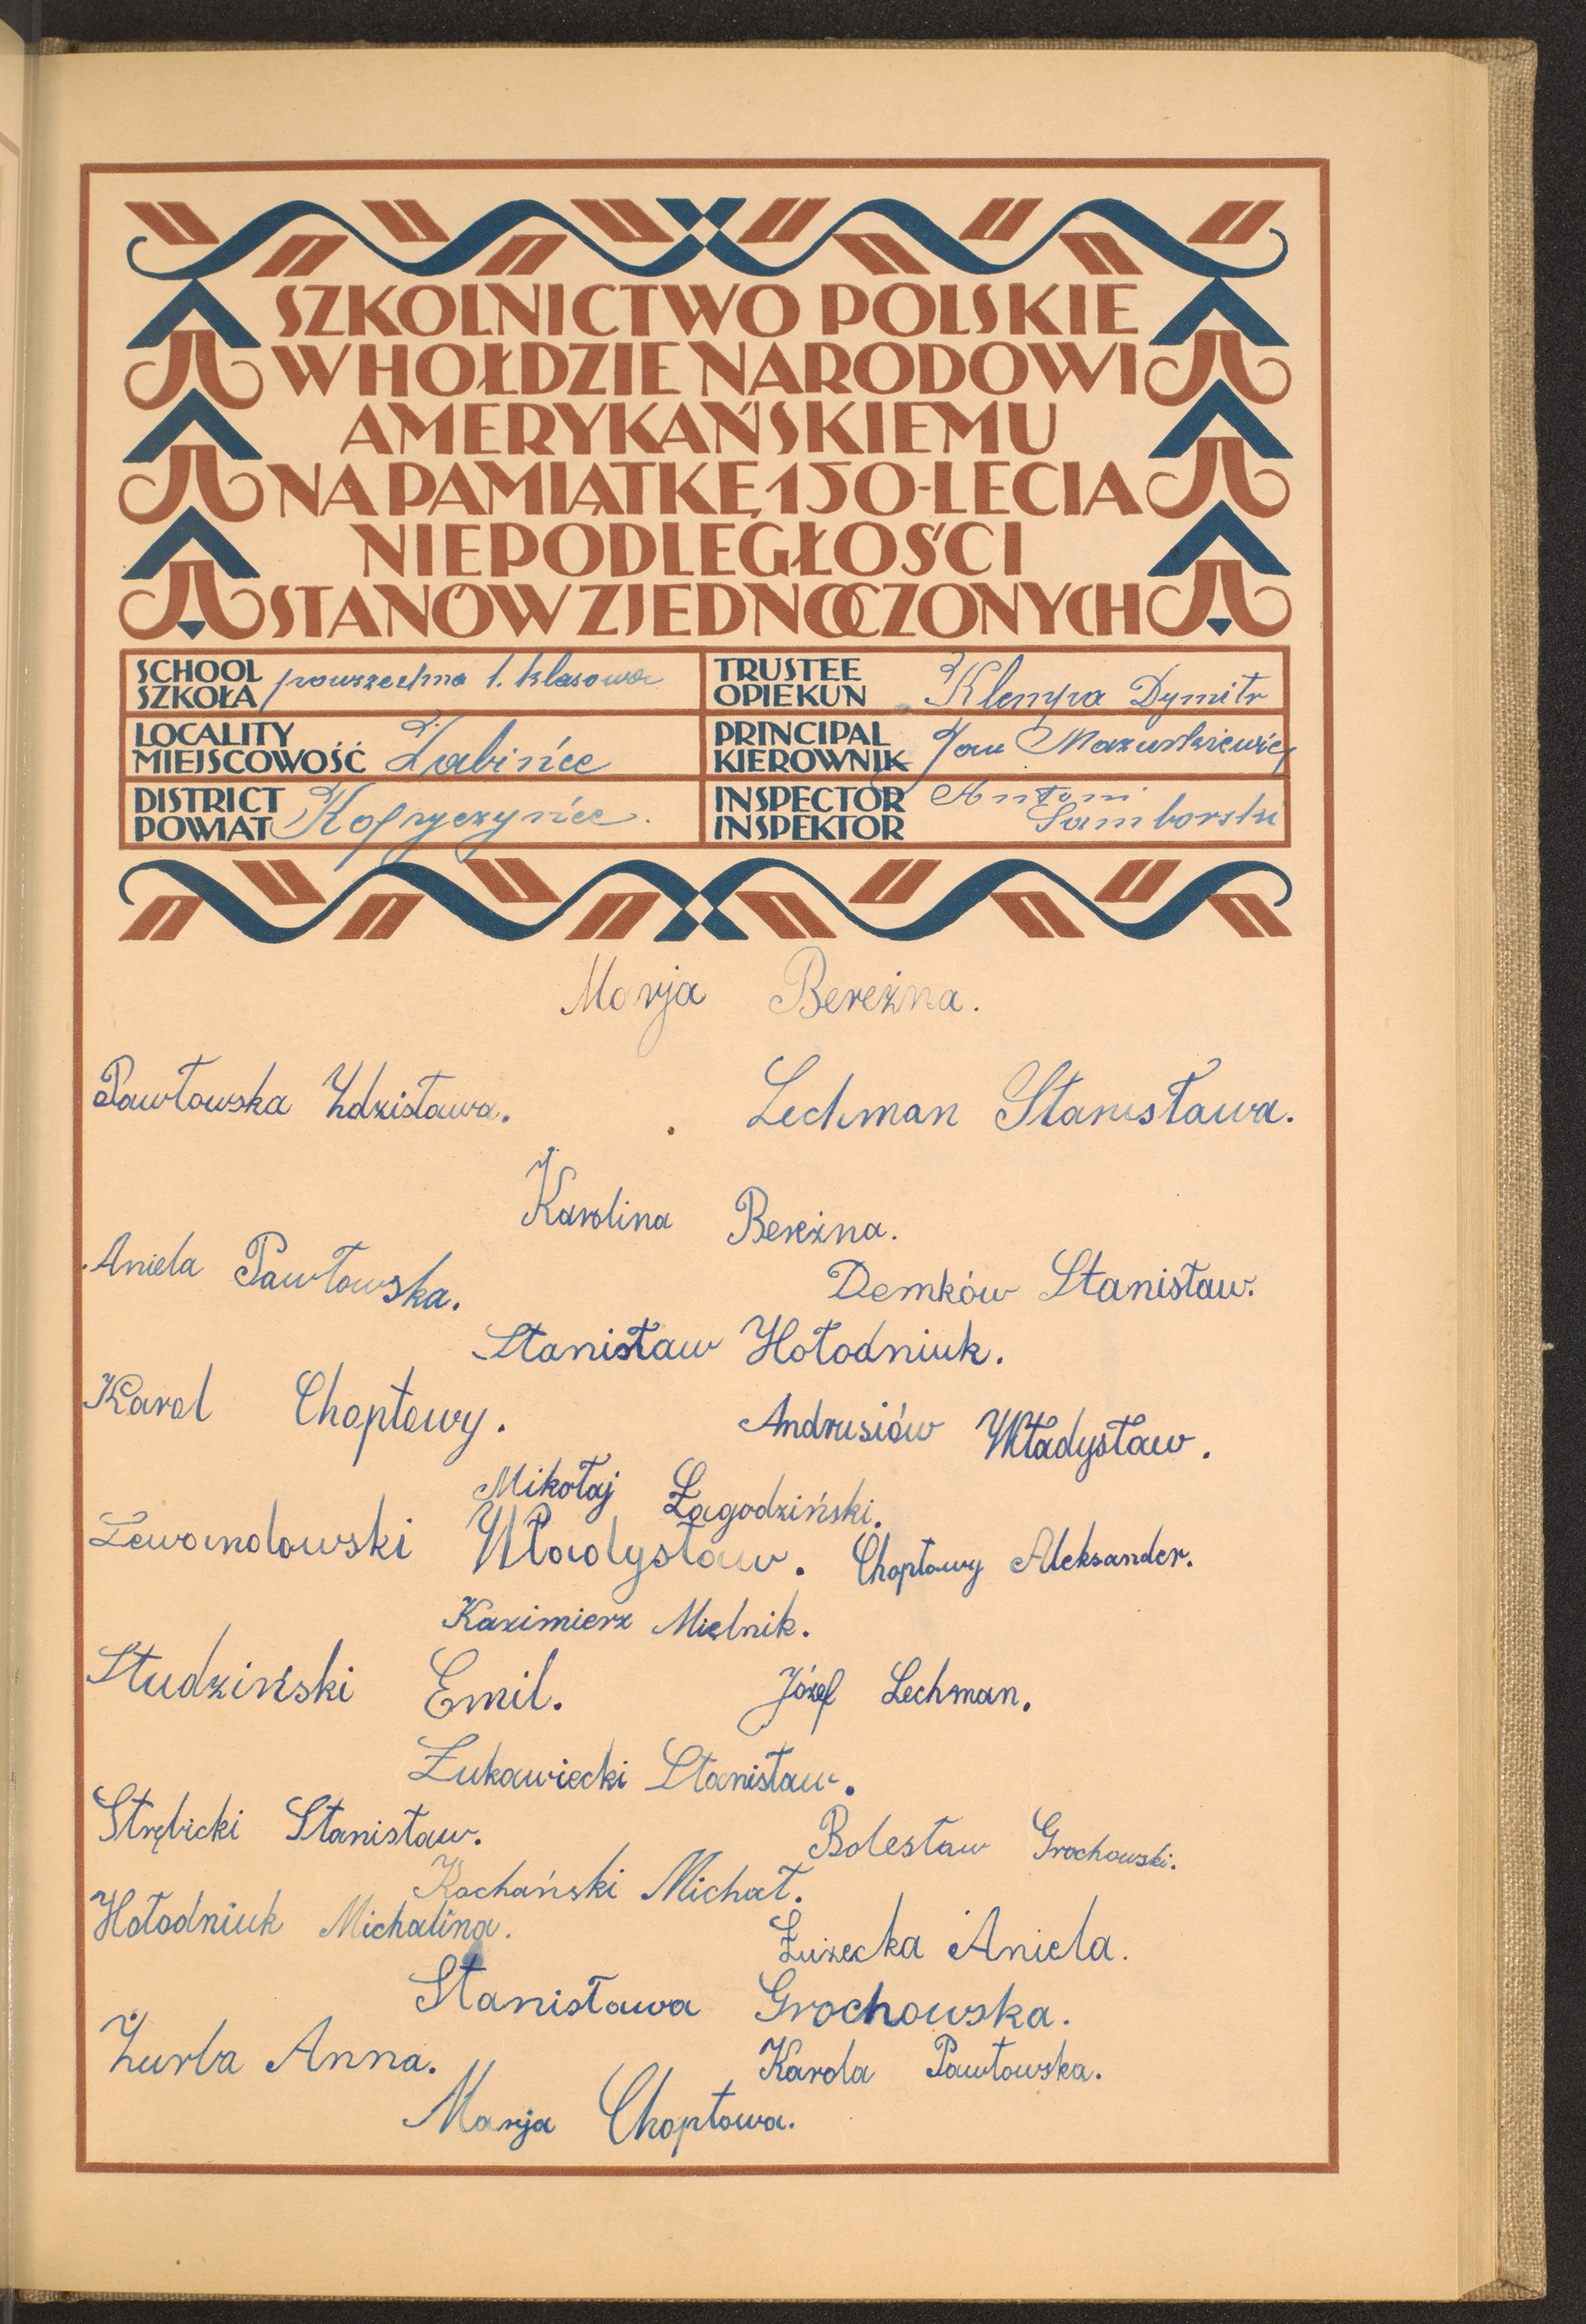 SZKOLNICTWO POLSKIE
W HOŁDZIE NARODOWI
AMERYKAŃSKIEMU
NA PAMIĄTKĘ 150-LECIA
NIEPODLEGŁOŚCI
STANÓW ZJEDNOCZONYCH
SCHOOL
SZKOŁA powszechna 1. klasowa
TRUSTEE
OPIEKUN Klempa Dymitr
LOCALITY
MIEJSCOWOŚĆ Żabińce
PRINCIPAL
KIEROWNIK Jan Mazurkiewicz
DISTRICT
POWIAT Kopyczyńce.
INSPECTOR Antoni
INSPEKTOR Samborski
Marja Bereżna.
Pawłowska Zdzisława.
Lechman Stanisława.
Karolina Bereżna.
Aniela Pawłowska.
Demków Stanisław.
Stanisław Hołodniuk.
Karol Choptowy.
Andrusiów Władysław.
Mikołaj Łagodziński.
Lewandowski Władysław.
Choptowy Aleksander.
Kazimierz Mielnik.
Studziński Emil.
Józef Lechman.
Żukawiecki Stanisław.
Strębicki Stanisław.
Bolesław Grochowski.
Kochański Michał.
Hołodniuk Michalina.
Łużecka Aniela.
Stanisława Grochowska.
Żurba Anna.
Karola Pawłowska.
Marja Choptowa.